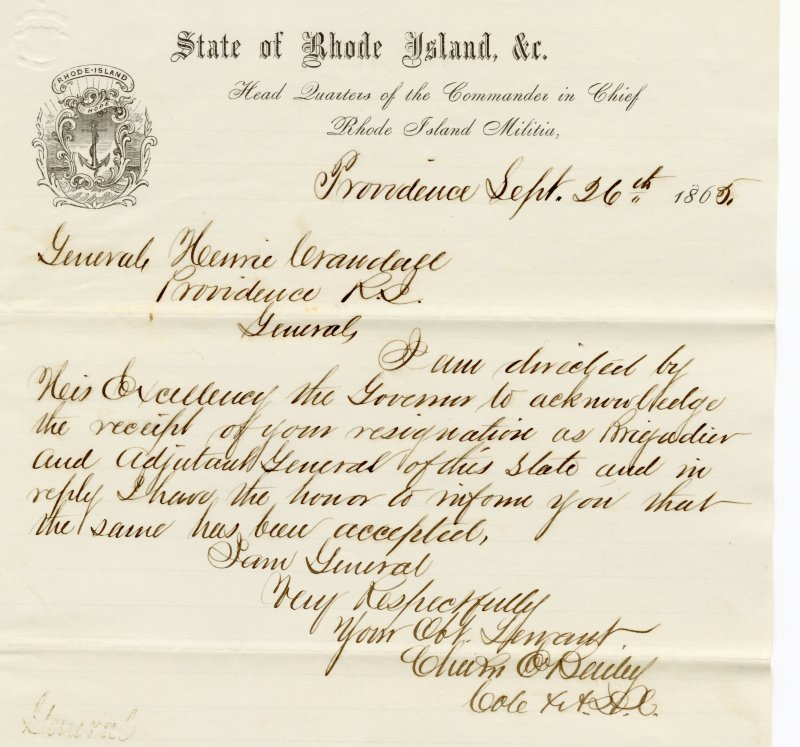 State of Rhode Island, &c.
Head Quarters of the Commander in Chief
Rhode Island Militia,
RHODE-ISLAND
HOPE
Providence Sept. 26th 1865.
General Henrie Crandall
Providence R.I.
General,
I am directed by
His Excellency the Governor to acknowledge
the receipt of your resignation as Brigadier
and Adjutant General of this State and in
reply I have the honor to inform you that
the same has been accepted,
I am General
Very Respectfully
Your Obt. Servant
Bailey
Col & A.D.C.
General